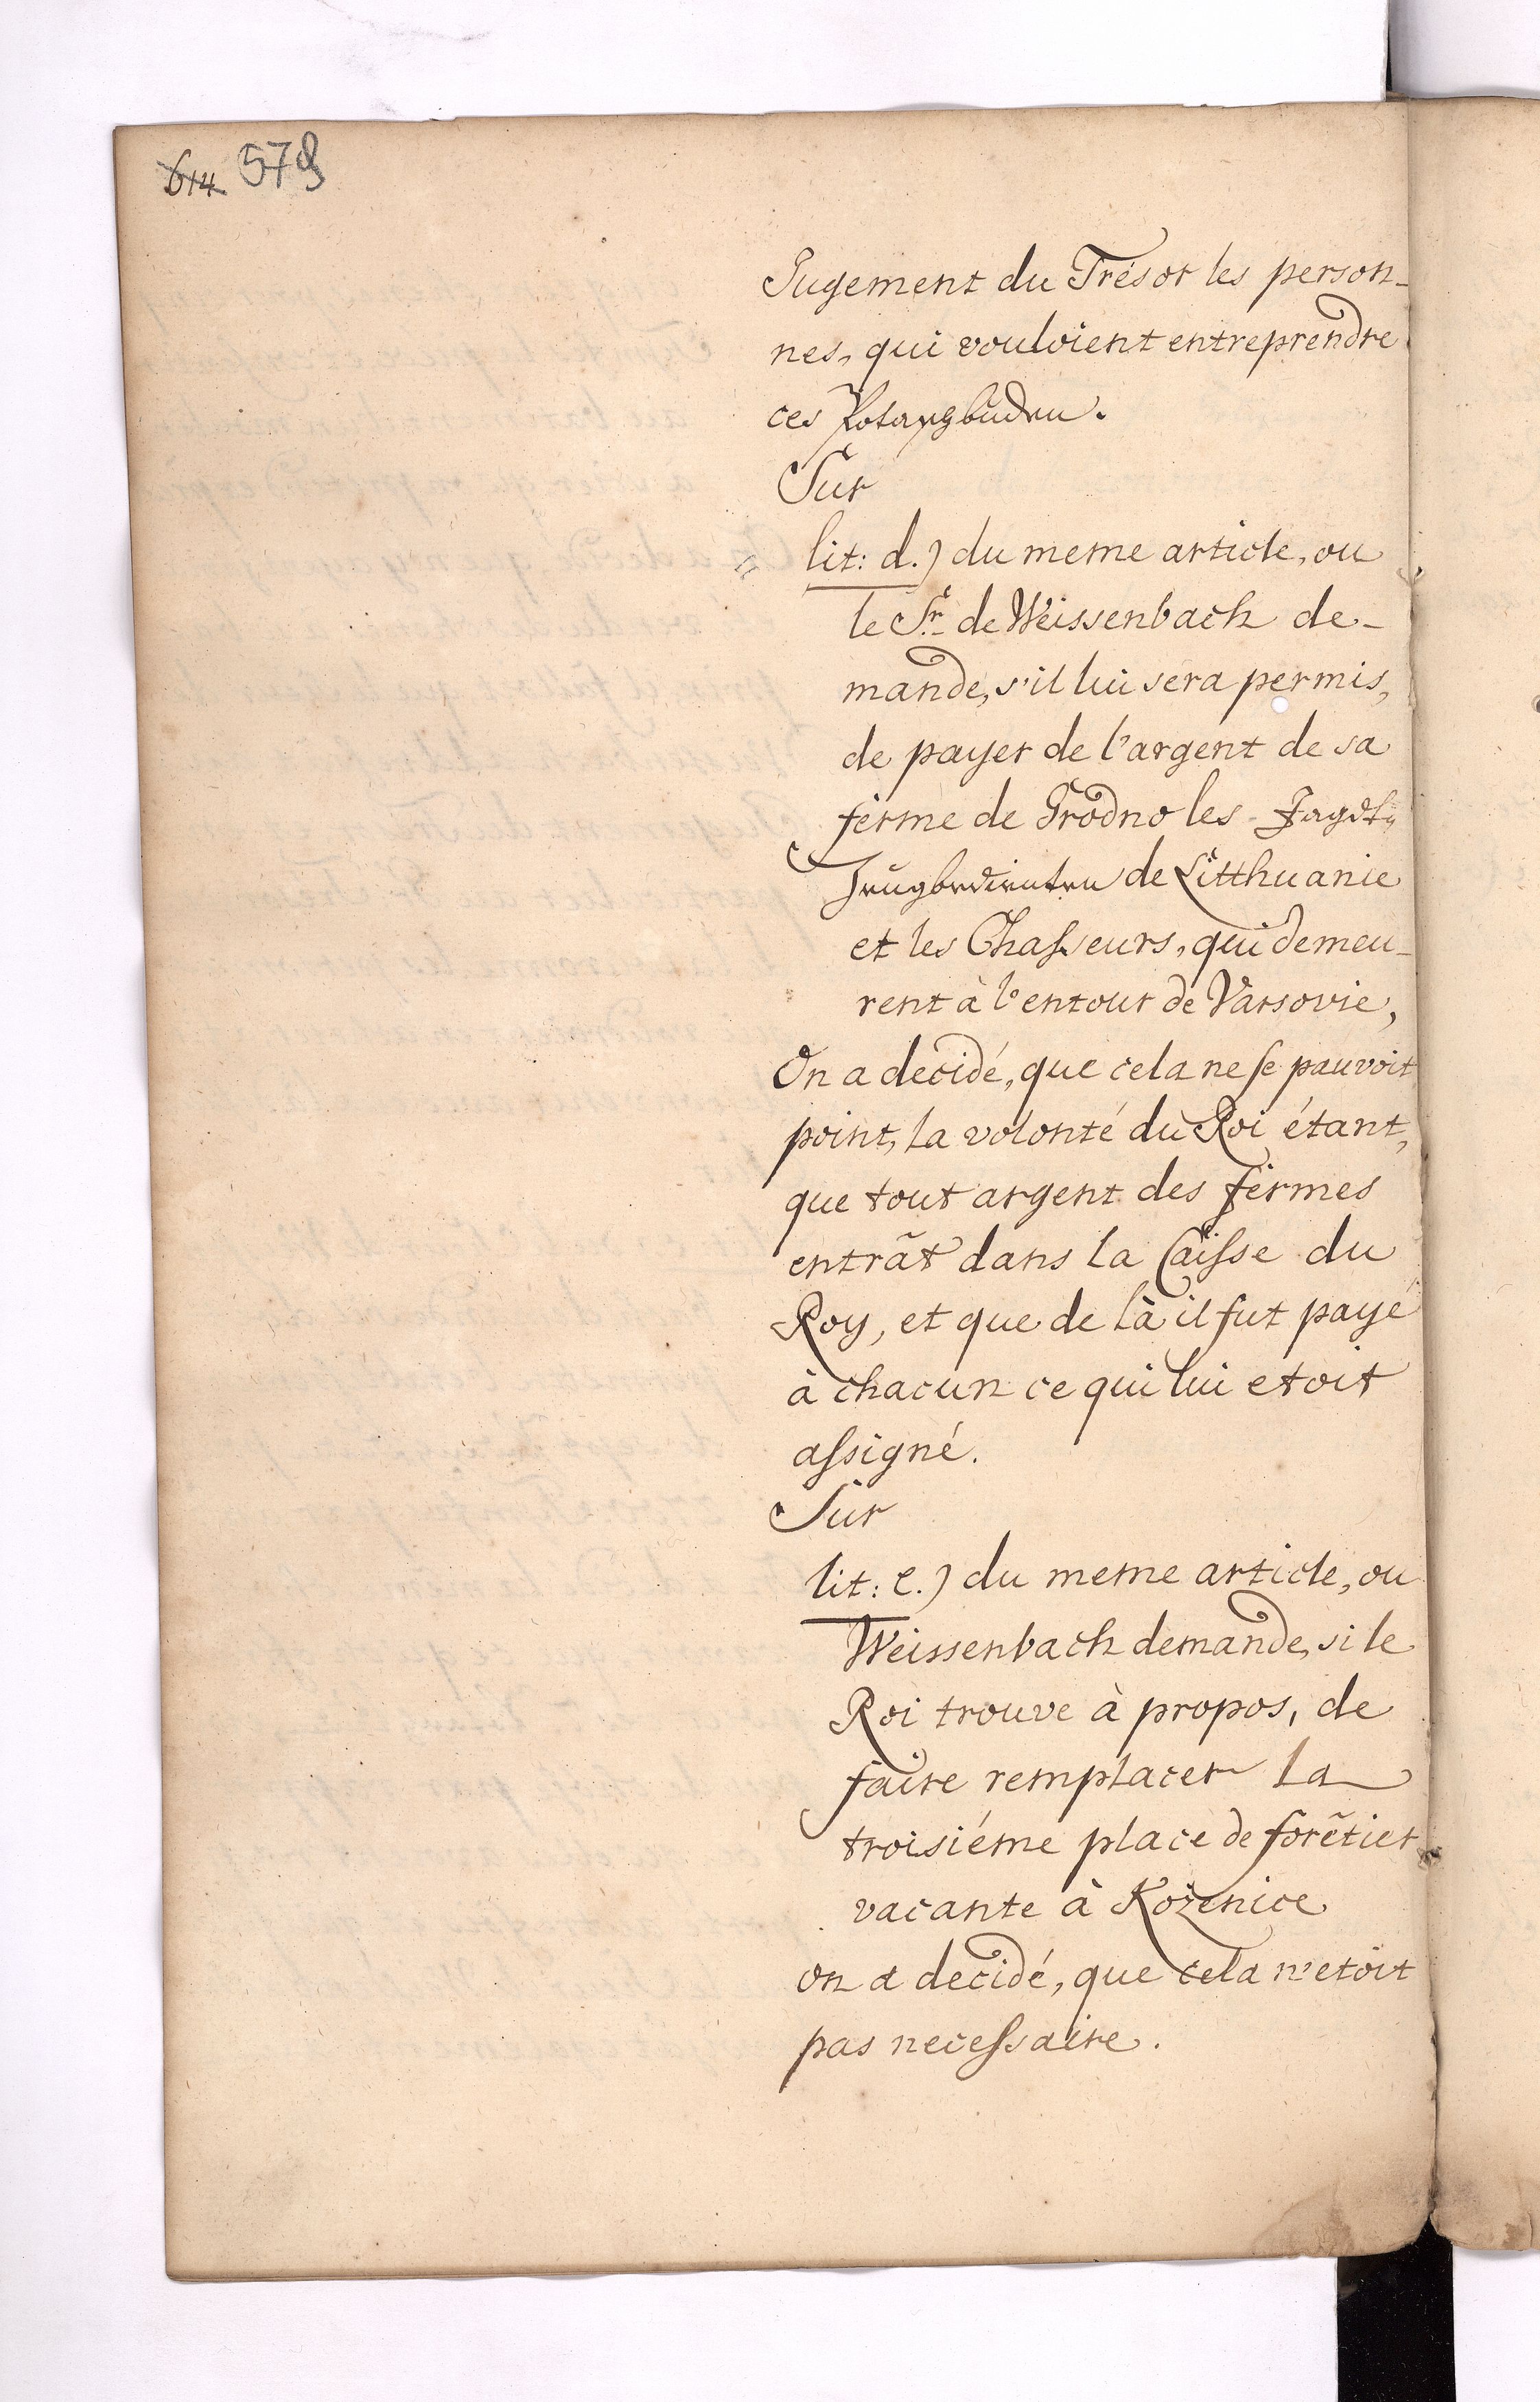 614 579
Jugement du Trésor les person-
nes, qui vouloient entreprendre
ces Potaschbuden.
Sur
lit: d.) du meme article, ou
le Sr. de Weissenbach de-
mande, s'il lui sera permis,
de payer de l'argent de sa
ferme de Grodno les Jagdt-
Zeugbedienten de Litthuanie
et les Chasseurs, qui demeu-
rent à l'entour de Varsovie,
On a decidé, que cela ne se pauvoit
point, la volonté du Roi étant,
que tout argent des fermes
entrât dans la Caisse du
Roy, et que de là il fut payé
à chacun ce qui lui etoit
assigné.
Sur
lit: e.) du meme article, ou
Weissenbach demande, si le
Roi trouve à propos, de
faire remplacer la
troisiéme place de forêtier
vacante à Kożenice
on a decidé, que cela n'etoit
pas necessaire.